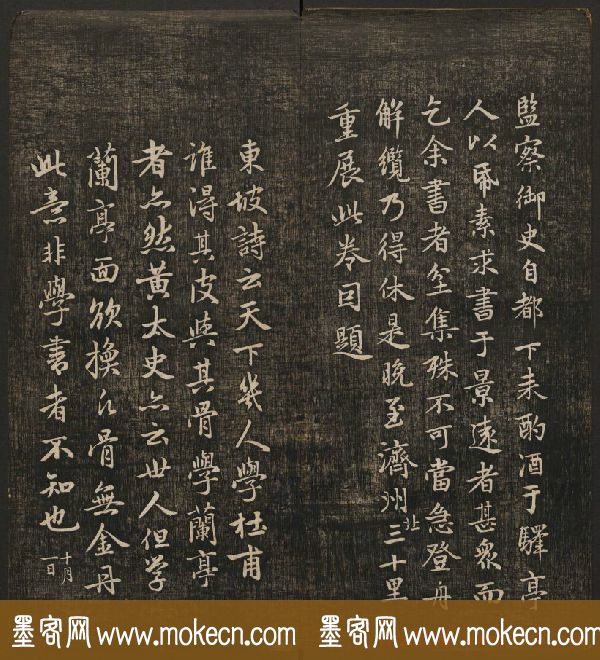 監察御史自都下来酌酒于驛亭
人以帋素求書于景遠者甚衆而
乞余書者坌集殊不可當急登舟
解纜乃得休是晚至濟州北三十里
重展此卷因題
東坡詩云天下幾人學杜甫
誰得其皮與其骨學蘭亭
者亦然黄太史亦云世人但学
蘭亭面欲換凡骨無金丹
此意非學書者不知也 十月一日
墨客网 www.mokecn.com 墨客网 www.mokecn.com